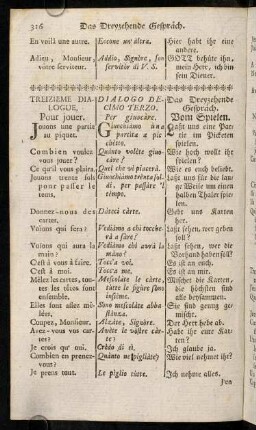 316 Das Dreyzehende Gespräch.
En voilà une autre.
Adieu, Monsieur, vôtre serviteur.
TREIZIEME DIA-
LOGUE,
Pour jouer.
Jouons une partie
au piquet.
Combien voulez
vous jouer?
Ce qu'il vous plaira.
Jouons trente sols
pour passer le
tems.
Donnez-nous des
cartes.
Voions qui fera?
Voions qui aura la
main?
C'est à vous à faire.
C'est à moi.
Mêlez les cartes, toutes
les têtes sont
ensemble.
Elles sont assez mê-
lées.
Coupez, Monsieur.
Avez-vous vos car-
tes?
Je crois qu' oui.
Combien en prenez-
vous?
Je prens tout.
Eccone un' altra.
Addio, Signore, son
servitor di V. S.
DIALOGO DE-
CIMO TERZO,
Per giuocare.
Giuochiamo una
partita a pic
chetto.
Quanto volete giuo-
care?
Quel che vi piacerà.
Giuochiamo trenta sol-
di, per passare 'l
tempo.
Dateci carte.
Vediamo a chi tocche-
rà a fare?
Vediamo chi avrà la
mano?
Tocca a voi.
Tocca a me.
Mescolate le carte,
tutte le figure sono
insieme.
Sono mescolate abba
stanza.
Alzate, Signore.
Avete le vostre car-
te?
Credo di sì.
Quante ne pigliate?
Le piglio tutte.
Hier habt ihr eine
andere.
GOTT behüte ihn,
mein Herr, ich bin
sein Diener.
Das Dreyzehende
Gespräch.
Vom Spielen.
Laßt uns eine Par-
tie im Picketen
spielen.
Wie hoch wollt ihr
spielen?
Wie es euch beliebt.
Laßt uns für die lan-
ge Weile um einen
halben Thaler spie-
len.
Gebt uns Karten
her.
Laßt sehen, wer geben
soll?
Laßt sehen, wer die
Vorhand haben soll?
Es ist an euch.
Es ist an mir.
Mischet die Karten,
die höchsten sind
alle beysammen.
Sie sind genug ge-
mischt.
Der Herr hebe ab.
Habt ihr eure Kar-
ten?
Ich glaube ja.
Wie viel nehmet ihr?
Ich nehme alles.